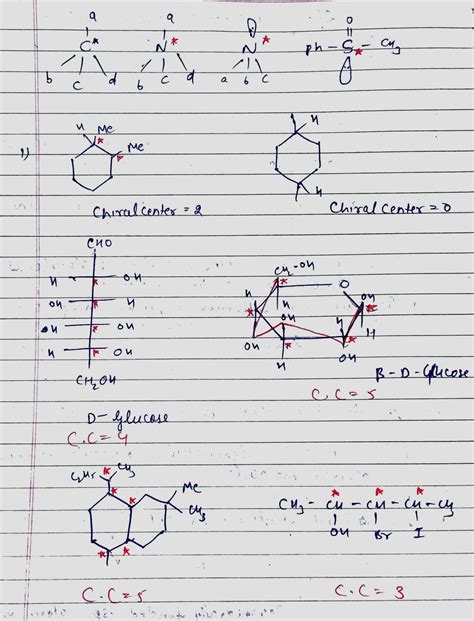 a a
C* N* N* Ph - S - CH3
O
*
b c d b c d a b c
1)
H Me
* Me
*
H
H
Chiral center = 2 Chiral center = 0
CHO
H * OH
OH * H
OH * H
H * OH
CH2OH
D- glucose
C.C = 4
CH -OH
* O
H OH
* H OH * H
OH * * OH
H
B - D - Glucose
C.C = 5
C2H5 * CH3
* Me
* CH3
* *
C.C = 5
CH3 - CH - CH - CH - CH3
* * *
OH Br I
C.C = 3